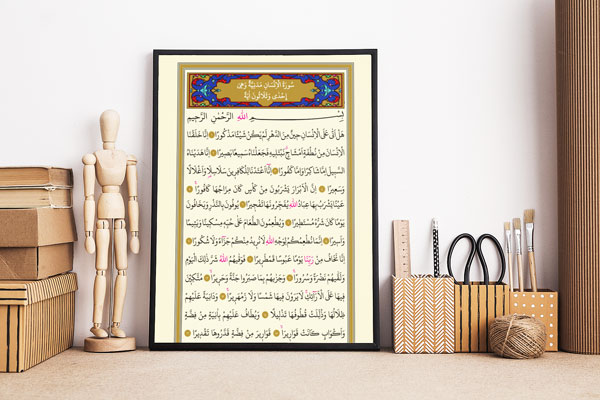 سُورَةُ الْاِنْسَانِ مَدَنِيَّةٌ وَهِيَ
اِحْدٰى وَثَلَاثُونَ اٰيَةً
بِسْمِ اللهِ الرَّحْمٰنِ الرَّحِيمِ
هَلْ اَتٰى عَلَى الْاِنْسَانِ حِينٌ مِنَ الدَّهْرِ لَمْ يَكُنْ شَيْئًا مَذْكُورًا اِنَّا خَلَقْنَا
الْاِنْسَانَ مِنْ نُطْفَةٍ اَمْشَاجٍ نَبْتَلِيهِ فَجَعَلْنَاهُ سَمِيعًا بَصِيرًا اِنَّا هَدَيْنَاهُ
السَّبِيلَ اِمَّا شَاكِرًا وَاِمَّا كَفُورًا اِنَّا اَعْتَدْنَا لِلْكَافِرِينَ سَلَاسِلَا وَاَغْلَالًا
وَسَعِيرًا اِنَّ الْاَبْرَارَ يَشْرَبُونَ مِنْ كَأْسٍ كَانَ مِزَاجُهَا كَافُورًا
عَيْنًا يَشْرَبُ بِهَا عِبَادُ اللهِ يُفَجِّرُونَهَا تَفْجِيرًا يُوفُونَ بِالنَّذْرِ وَيَخَافُونَ
يَوْمًا كَانَ شَرُّهُ مُسْتَطِيرًا وَيُطْعِمُونَ الطَّعَامَ عَلٰى حُبِّهِ مِسْكِينًا وَيَتِيمًا
وَاَسِيرًا اِنَّمَا نُطْعِمُكُمْ لِوَجْهِ اللهِ لَا نُرِيدُ مِنْكُمْ جَزَاءً وَلَا شُكُورًا
اِنَّا نَخَافُ مِنْ رَبِّنَا يَوْمًا عَبُوسًا قَمْطَرِيرًا فَوَقٰيهُمُ اللهُ شَرَّ ذٰلِكَ الْيَوْمِ
وَلَقّٰيهُمْ نَضْرَةً وَسُرُورًا وَجَزٰيهُمْ بِمَا صَبَرُوا جَنَّةً وَحَرِيرًا مُتَّكِئِينَ
فِيهَا عَلَى الْاَرَائِكِ لَا يَرَوْنَ فِيهَا شَمْسًا وَلَا زَمْهَرِيرًا وَدَانِيَةً عَلَيْهِمْ
ظِلَالُهَا وَذُلِّلَتْ قُطُوفُهَا تَذْلِيلًا وَيُطَافُ عَلَيْهِمْ بِاٰنِيَةٍ مِنْ فِضَّةٍ
وَاَكْوَابٍ كَانَتْ قَوَارِيرَا قَوَارِيرَ مِنْ فِضَّةٍ قَدَّرُوهَا تَقْدِيرًا